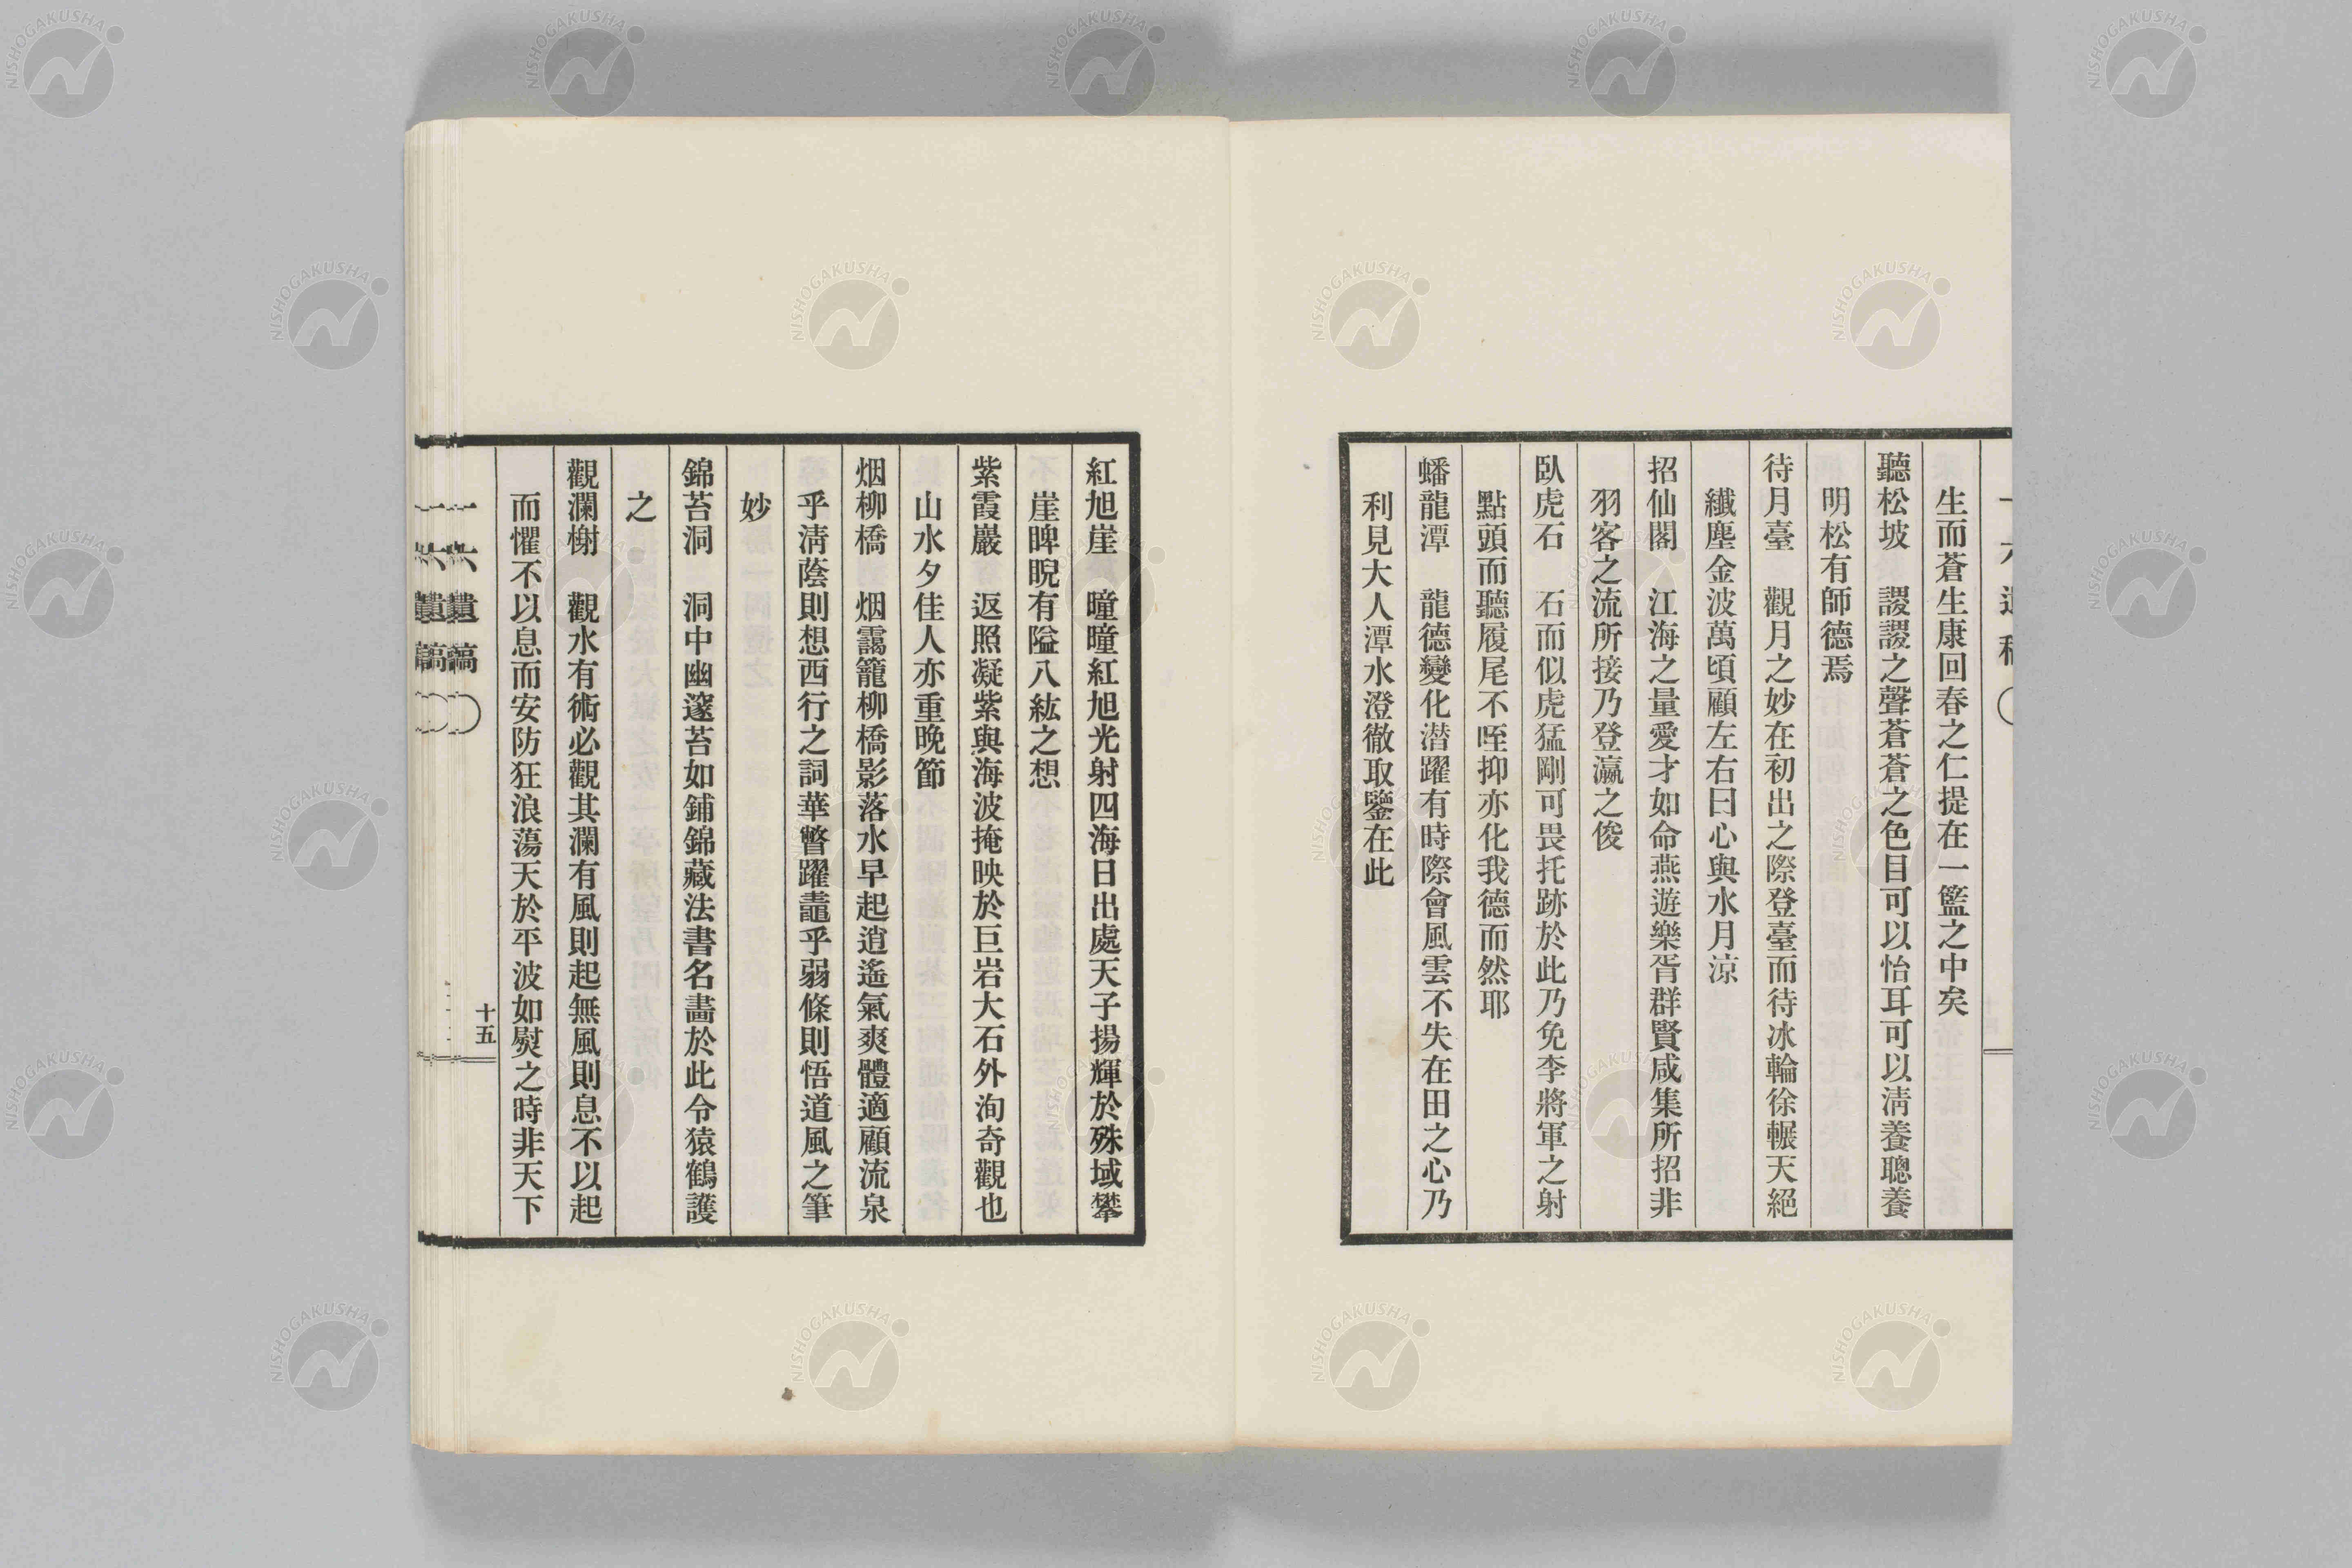 生而蒼生康回春之仁提在一籃之中矣
聽松坡　謖謖之聲蒼蒼之色目可以怡耳可以淸養聰養
明松有師德焉
待月臺　觀月之妙在初出之際登臺而待冰輪徐輾天絕
纖塵金波萬頃顧左右曰心與水月涼
招仙閣　江海之量愛才如命燕遊樂胥群賢咸集所招非
羽客之流所接乃登瀛之俊
臥虎石　石而似虎猛剛可畏托跡於此乃免李將軍之射
點頭而聽履尾不咥抑亦化我德而然耶
蟠龍潭　龍德變化潛躍有時際會風雲不失在田之心乃
利見大人潭水澄徹取鑒在此
紅旭崖　曈曈紅旭光射四海日出處天子揚輝於殊域攀
崖睥睨有隘八紘之想
紫霞巖　返照凝紫與海波掩映於巨岩大石外洵奇觀也
山水夕佳人亦重晚節
烟柳橋　烟靄籠柳橋影落水早起逍遙氣爽體適顧流泉
乎淸蔭則想西行之詞華瞥躍鼃乎弱條則悟道風之筆
妙
錦苔洞　洞中幽邃苔如鋪錦藏法書名畵於此令猿鶴護
之
觀瀾榭　觀水有術必觀其瀾有風則起無風則息不以起
而懼不以息而安防狂浪蕩天於平波如熨之時非天下
一六遺稿
十五
NISHOGAKUSHA